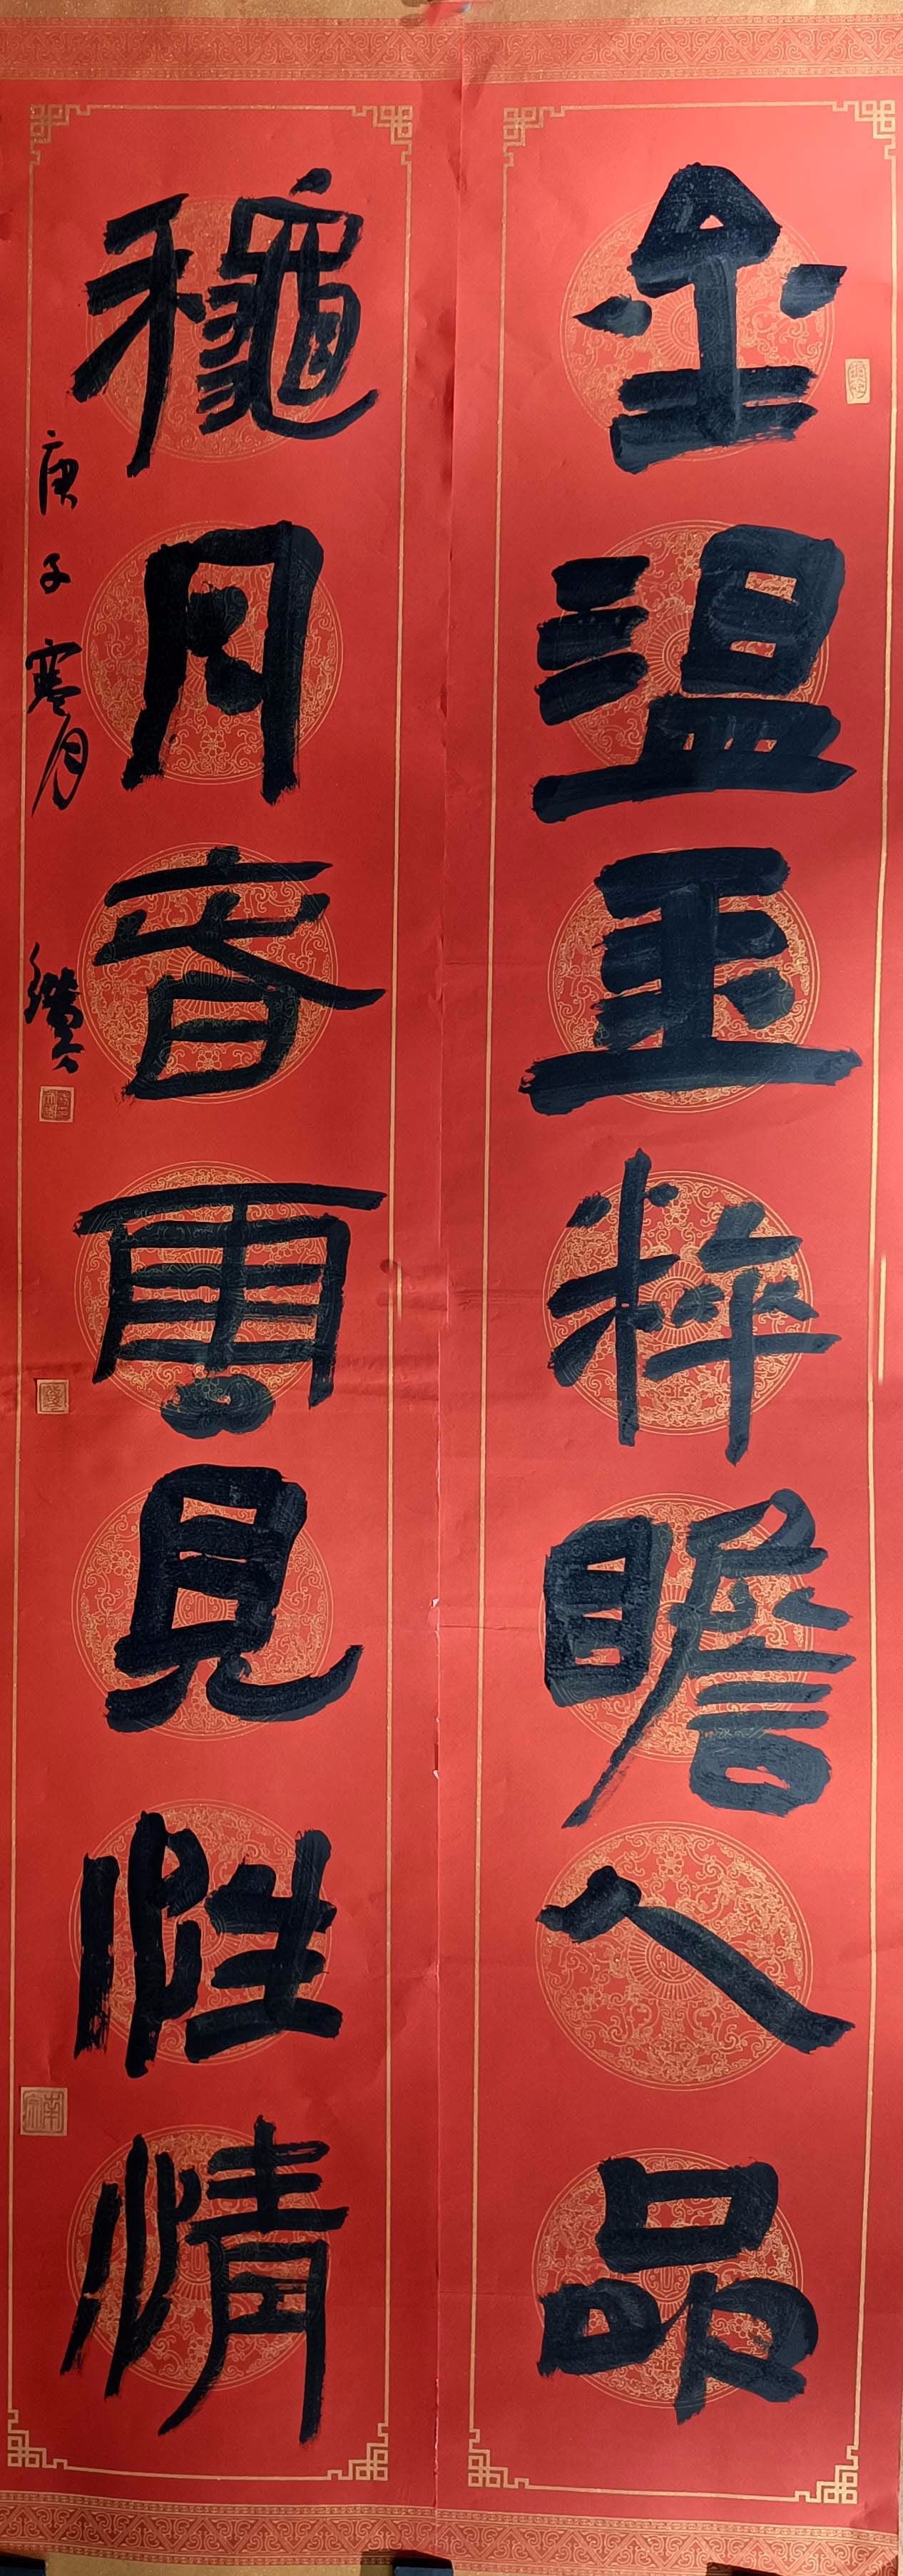 金温玉粹瞻人品
龝月春雲見性情
庚子寒月